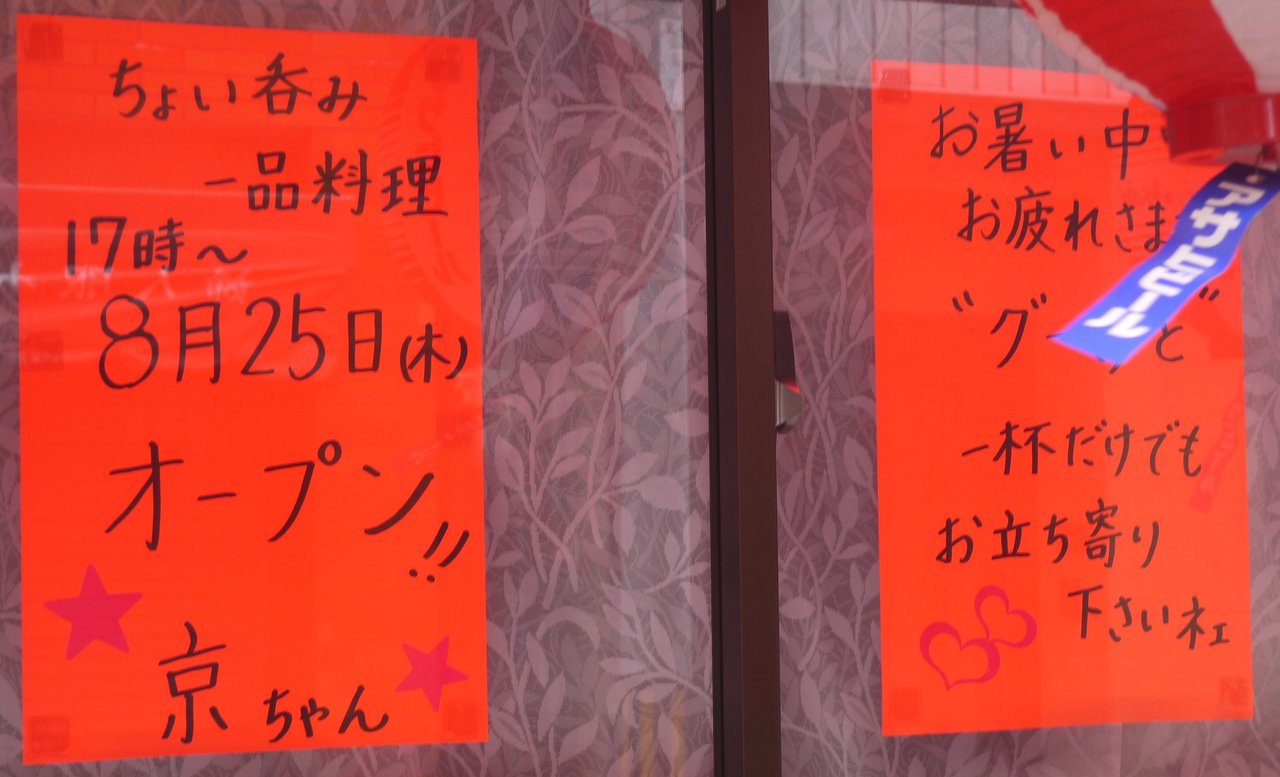 ちょい呑み
一品料理
17時〜
8月25日(木)
オープン!!
京ちゃん
お暑い中
お疲れさま
一杯だけでも
お立ち寄り
下さいネェ
アサヒビール